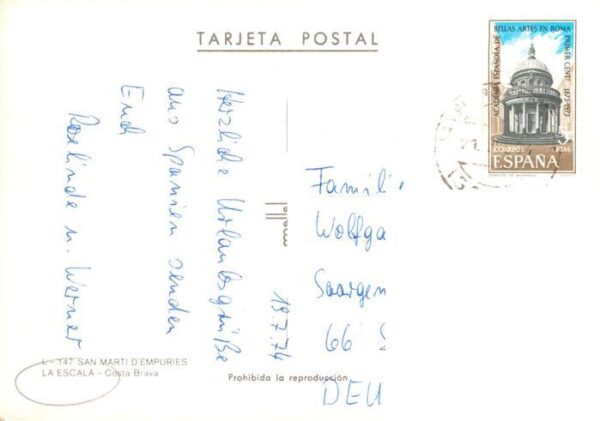 TARJETA POSTAL
ACADEMIA ESPAÑOLA DE
BELLAS ARTES EN ROMA
PRIMER CENT. 1873-1973
CORREOS PTAS
ESPAÑA
Herzliche Urlaubsgrüße
aus Spanien senden
Euch
Roselinde u. Werner
19.7.74
Famili
Wolfga
Saargem
66 S
DEU
L - 147 SAN MARTI D'EMPURIES
LA ESCALA - Costa Brava
Prohibida la reproducción